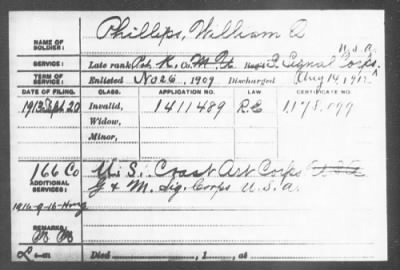 Phillips, William A
NAME OF SOLDIER:
U.S.A.
SERVICE: Late rank Pvt. K, Co. M Reg't Signal Corps.
TERM OF SERVICE: Enlisted Nov 26, 1909 Discharged Aug 14, 191
DATE OF FILING. CLASS. APPLICATION NO. LAW CERTIFICATE NO.
1913 Sept 20 Invalid, 1411489 R.E 1178099
Widow,
Minor,
166 Co U.S. Coast Art Corps
ADDITIONAL SERVICES: G & M. Sig. Corps U.S.A.
REMARKS:
Died , 1 , at